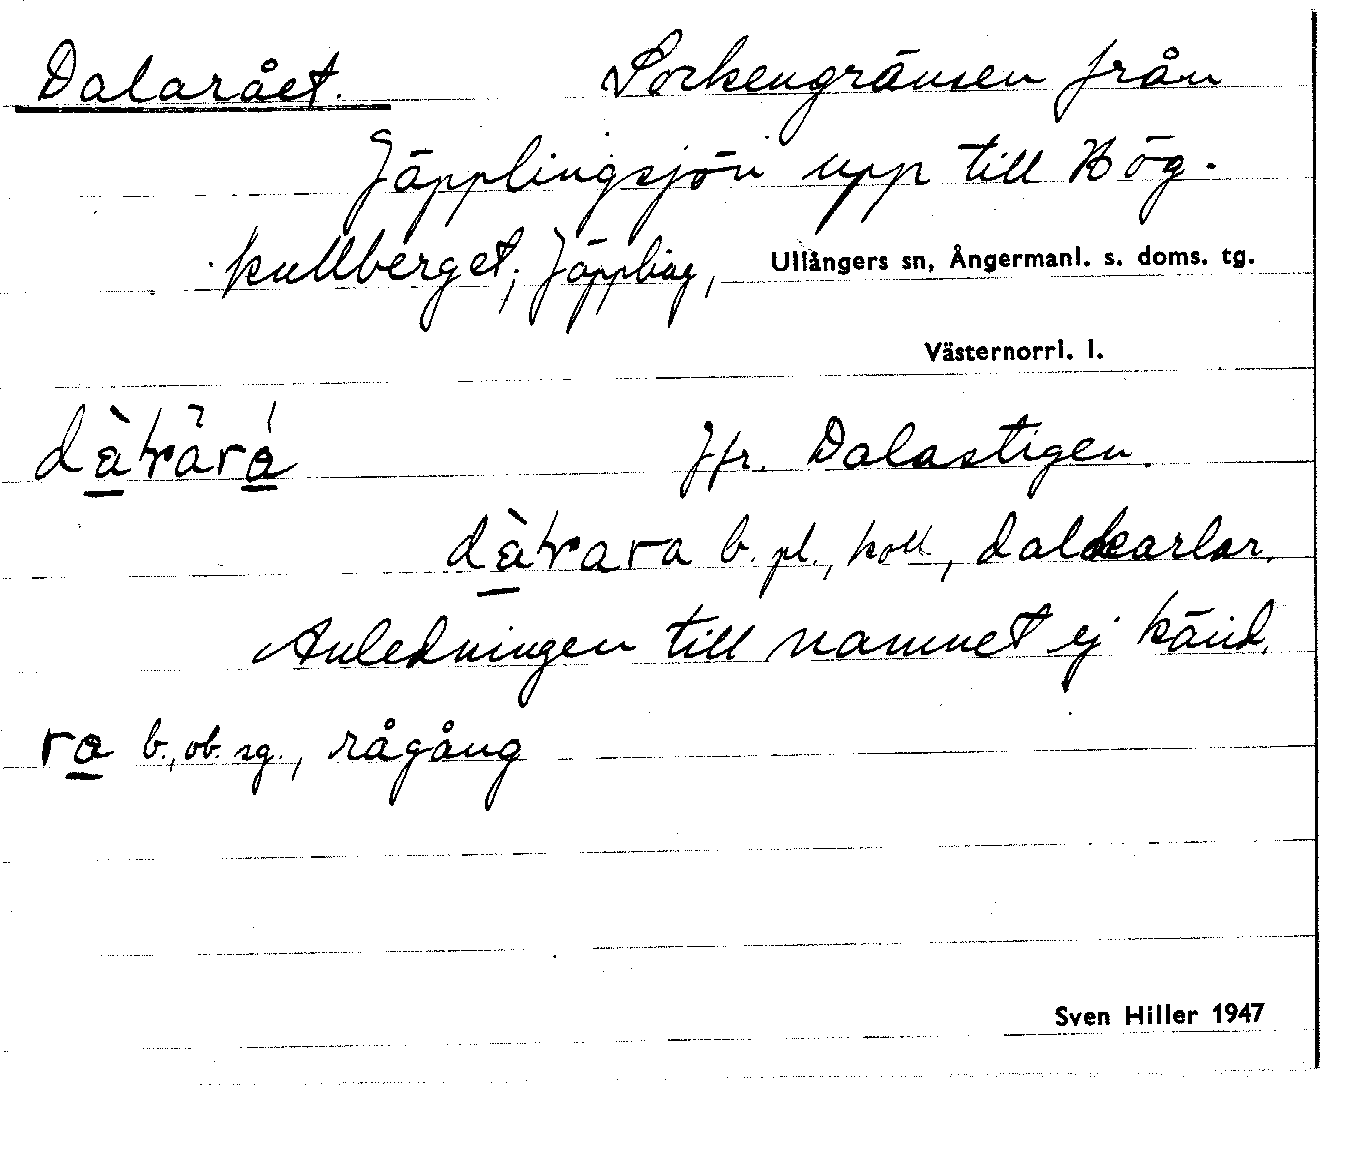 Dalarået. Sockengränsen från
Jäpplingsjön upp till Hög-
kullberget, Jäppling, Ullångers sn, Ångermanl. s. doms. tg.
Västernorrl. l.
Jfr. Dalastigen.
b. pl., koll., dalkarlar.
Anledningen till namnet ej känd.
b., ob. sg., rågång
Sven Hiller 1947